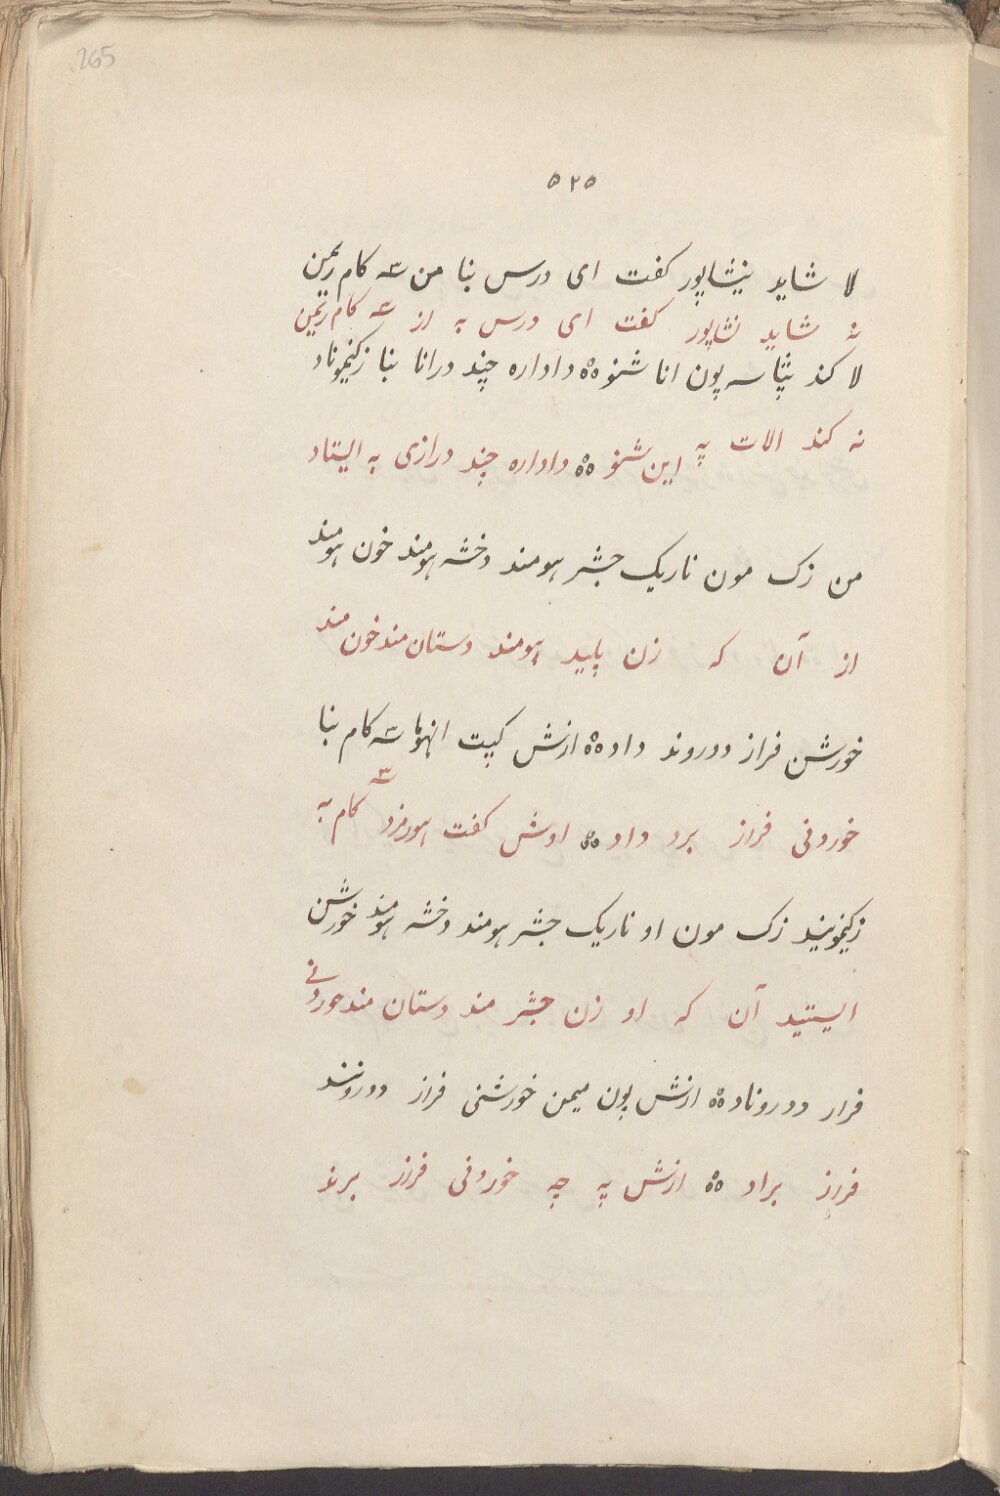 265
۵۲۵
لا شاید نیشاپور کفت ای درس بنا من سه کام ریمن
نه شاید نشاپور کفت ای درس به از سه کام ریمن
لا کند پون انا شنو ۀۀ داداره چند درانا بنا زکیموناد
نه کند الات په این شنو ۀۀ داداره چند درازی به ایستاد
من زک مون ناریک جشر هومند دخشه هومند خون هومند
از آن که زن پلید هومند دستان مند خون مند
خورشن فراز دوروند داد ۀۀ ازش کپت انهوما سه کام بنا
خوردنی فراز برد داد ۀۀ اوش کفت هورمزد سه کام به
زکیمونید زک مون او ناریک جشر هومند دخشه هومند خورشن
ایستید آن که او زن جشر مند دستان مند خوردنی
فراز دوروناد ۀۀ ازش پون میمن خورشنی فراز دوروند
فراز براد ۀۀ ازش په چه خوردنی فراز برند